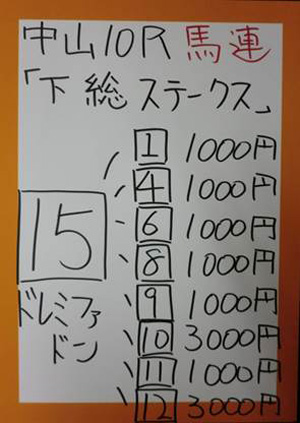 中山10R 馬連
「下総ステークス」
15
ドレミファ
ドン
1 1000円
4 1000円
6 1000円
8 1000円
9 1000円
10 3000円
11 1000円
12 3000円